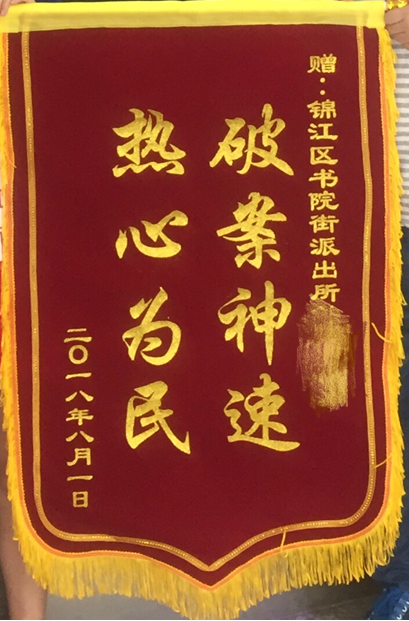 赠：锦江区书院街派出所
破案神速
热心为民
二〇一八年八月一日